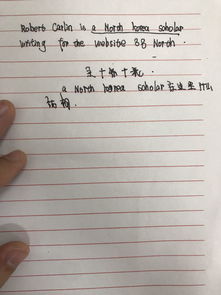 Robert Carlin is a North korea scholar
writing for the website 38 North.
主 + 系 + 表.
a North korea scholar 在这里作